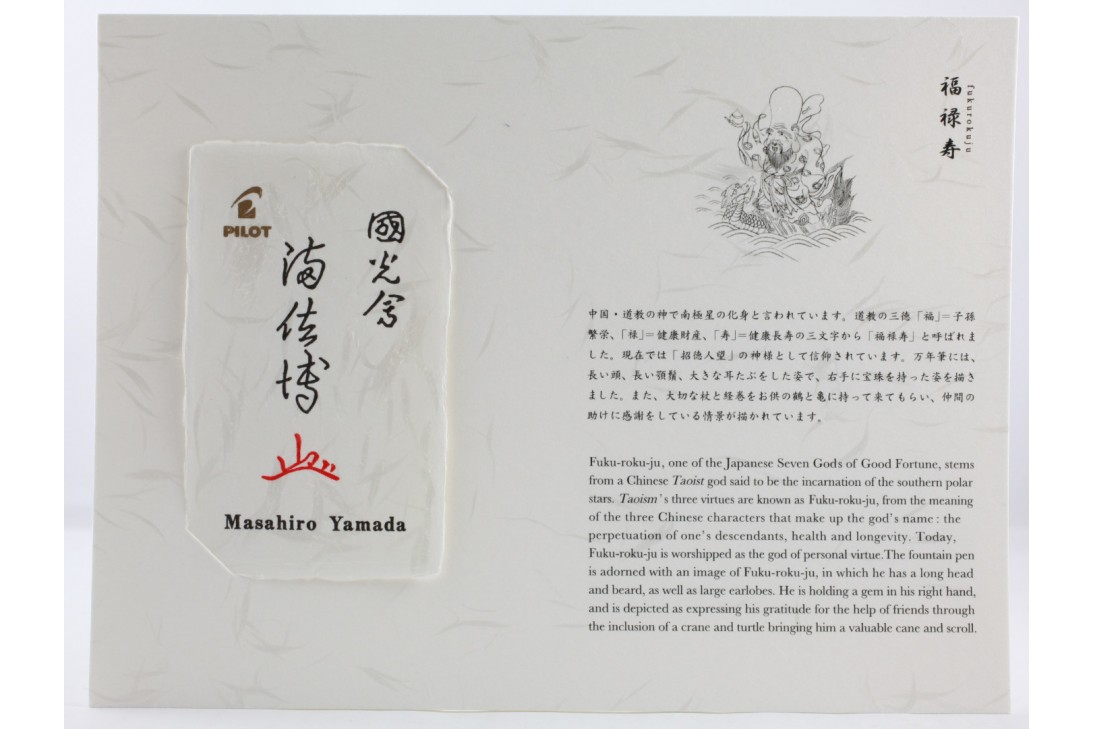 PILOT
國光會
満佐博
Masahiro Yamada
福禄寿
fukurokuju
中国・道教の神で南極星の化身と言われています。道教の三徳「福」=子孫
繁栄、「禄」=健康財産、「寿」=健康長寿の三文字から「福禄寿」と呼ばれま
した。現在では「招徳人望」の神様として信仰されています。万年筆には、
長い頭、長い顎鬚、大きな耳たぶをした姿で、右手に宝珠を持った姿を描き
ました。また、大切な杖と経巻をお供の鶴と亀に持って来てもらい、仲間の
助けに感謝をしている情景が描かれています。
Fuku-roku-ju, one of the Japanese Seven Gods of Good Fortune, stems
from a Chinese Taoist god said to be the incarnation of the southern polar
stars. Taoism's three virtues are known as Fuku-roku-ju, from the meaning
of the three Chinese characters that make up the god's name : the
perpetuation of one's descendants, health and longevity. Today,
Fuku-roku-ju is worshipped as the god of personal virtue.The fountain pen
is adorned with an image of Fuku-roku-ju, in which he has a long head
and beard, as well as large earlobes. He is holding a gem in his right hand,
and is depicted as expressing his gratitude for the help of friends through
the inclusion of a crane and turtle bringing him a valuable cane and scroll.